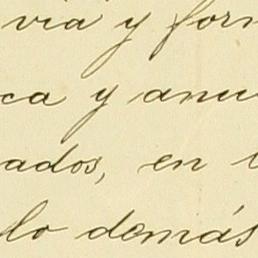 via y for
ca y anu
ados, en
lo demás